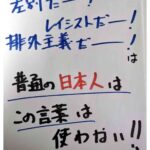 左翼だー!
レイシストだー!
排外主義だー!
は
普通の日本人は
この言葉は
使わない!!